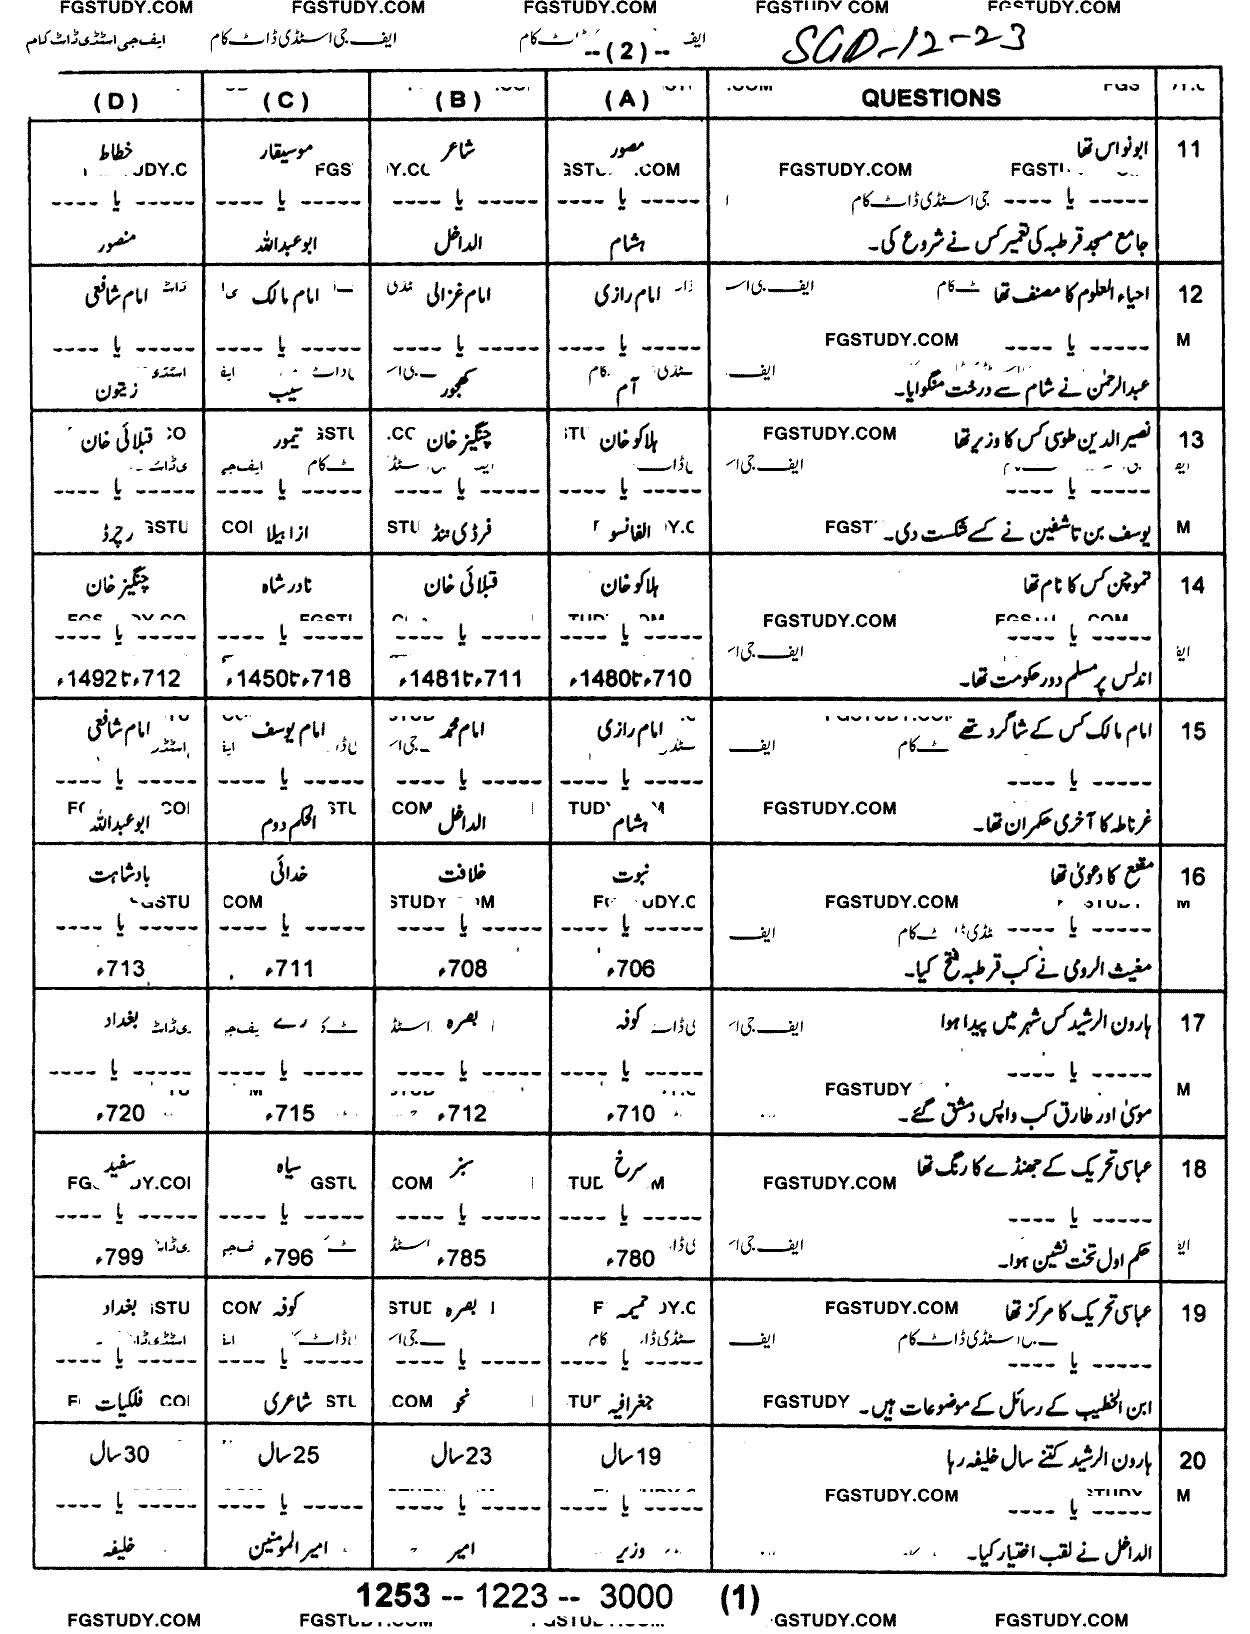 FGSTUDY.COM FGSTUDY.COM FGSTUDY.COM FGSTUDY.COM FGSTUDY.COM
ایف جی اسٹڈی ڈاٹ کام ایف جی اسٹڈی ڈاٹ کام
--(2)-- SGD-12-23
QUESTIONS (A) (B) (C) (D)
11 ابونواس تھا مصور شاعر موسیقار خطاط
FGSTUDY.COM
----- یا ---- ----- یا ---- ----- یا ---- ----- یا ---- ----- یا ----
جامع مسجد قرطبہ کی تعمیر کس نے شروع کی۔ ہشام الداخل ابوعبداللہ منصور
12 احیاء العلوم کا مصنف تھا امام رازی امام غزالی امام مالک امام شافعی
M FGSTUDY.COM
----- یا ---- ----- یا ---- ----- یا ---- ----- یا ---- ----- یا ----
عبدالرحمٰن نے شام سے درخت منگوایا۔ آم کھجور سیب زیتون
13 نصیر الدین طوسی کس کا وزیر تھا ہلاکو خان چنگیز خان تیمور قبلائی خان
FGSTUDY.COM
----- یا ---- ----- یا ---- ----- یا ---- ----- یا ---- ----- یا ----
M یوسف بن تاشفین نے کسے شکست دی۔ الفانسو فرڈی ننڈ ازابیلا رچرڈ
14 تموچن کس کا نام تھا ہلاکو خان قبلائی خان نادر شاہ چنگیز خان
FGSTUDY.COM
----- یا ---- ----- یا ---- ----- یا ---- ----- یا ---- ----- یا ----
اندلس پر مسلم دور حکومت تھا۔ 710ء تا 1480ء 711ء تا 1481ء 718ء تا 1450ء 712ء تا 1492ء
15 امام مالک کس کے شاگرد تھے امام رازی امام محمد امام یوسف امام شافعی
----- یا ---- ----- یا ---- ----- یا ---- ----- یا ---- ----- یا ----
FGSTUDY.COM
غرناطہ کا آخری حکمران تھا۔ ہشام الداخل الحکم دوم ابوعبداللہ
16 مقنع کا دعویٰ تھا نبوت خلافت خدائی بادشاہت
M FGSTUDY.COM
----- یا ---- ----- یا ---- ----- یا ---- ----- یا ---- ----- یا ----
مغیث الرومی نے کب قرطبہ فتح کیا۔ 706ء 708ء 711ء 713ء
17 ہارون الرشید کس شہر میں پیدا ہوا کوفہ بصرہ رے بغداد
----- یا ---- ----- یا ---- ----- یا ---- ----- یا ---- ----- یا ----
M FGSTUDY
موسیٰ اور طارق کب واپس دمشق گئے۔ 710ء 712ء 715ء 720ء
18 عباسی تحریک کے جھنڈے کا رنگ تھا سرخ سبز سیاہ سفید
FGSTUDY.COM
----- یا ---- ----- یا ---- ----- یا ---- ----- یا ---- ----- یا ----
حکم اول تخت نشین ہوا۔ 780ء 785ء 796ء 799ء
19 عباسی تحریک کا مرکز تھا حمیمہ بصرہ کوفہ بغداد
FGSTUDY.COM
----- یا ---- ----- یا ---- ----- یا ---- ----- یا ---- ----- یا ----
ابن الخطیب کے رسائل کے موضوعات ہیں۔ جغرافیہ نحو شاعری فلکیات
FGSTUDY
20 ہارون الرشید کتنے سال خلیفہ رہا 19سال 23سال 25سال 30سال
M FGSTUDY.COM
----- یا ---- ----- یا ---- ----- یا ---- ----- یا ---- ----- یا ----
الداخل نے لقب اختیار کیا۔ وزیر امیر امیر المومنین خلیفہ
1253 -- 1223 -- 3000 (1)
FGSTUDY.COM GSTUDY.COM FGSTUDY.COM